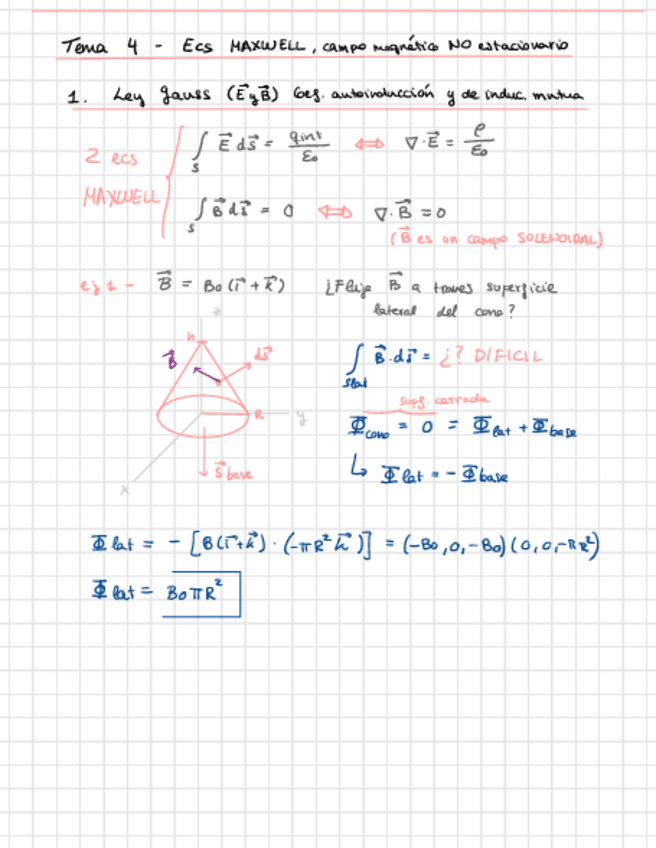 Tema 4 - Ecs MAXWELL, campo magnético NO estacionario
1. Ley gauss (E⃗ y B⃗) Coef. autoinducción y de induc. mutua
2 ecs
MAXWELL
∫_S E⃗ dS⃗ = qint/ε₀ ⇔ ∇·E⃗ = ρ/ε₀
∫_S B⃗ dS⃗ = 0 ⇔ ∇·B⃗ = 0
(B⃗ es un campo SOLENOIDAL)
ej 1 - B⃗ = B₀ (i⃗ + k⃗) ¿Flujo B⃗ a traves superficie
lateral del cono?
z
H
B⃗
dS⃗
R
y
S⃗ base
x
∫_Slat B⃗ · dS⃗ = ¿? DIFICIL
supf. cerrada
Φcono = 0 = Φlat + Φbase
↳ Φlat = - Φbase
Φlat = - [B(i⃗+k⃗) · (-πR² k⃗)] = (-B₀, 0, -B₀)(0, 0, -πR²)
Φlat = B₀πR²